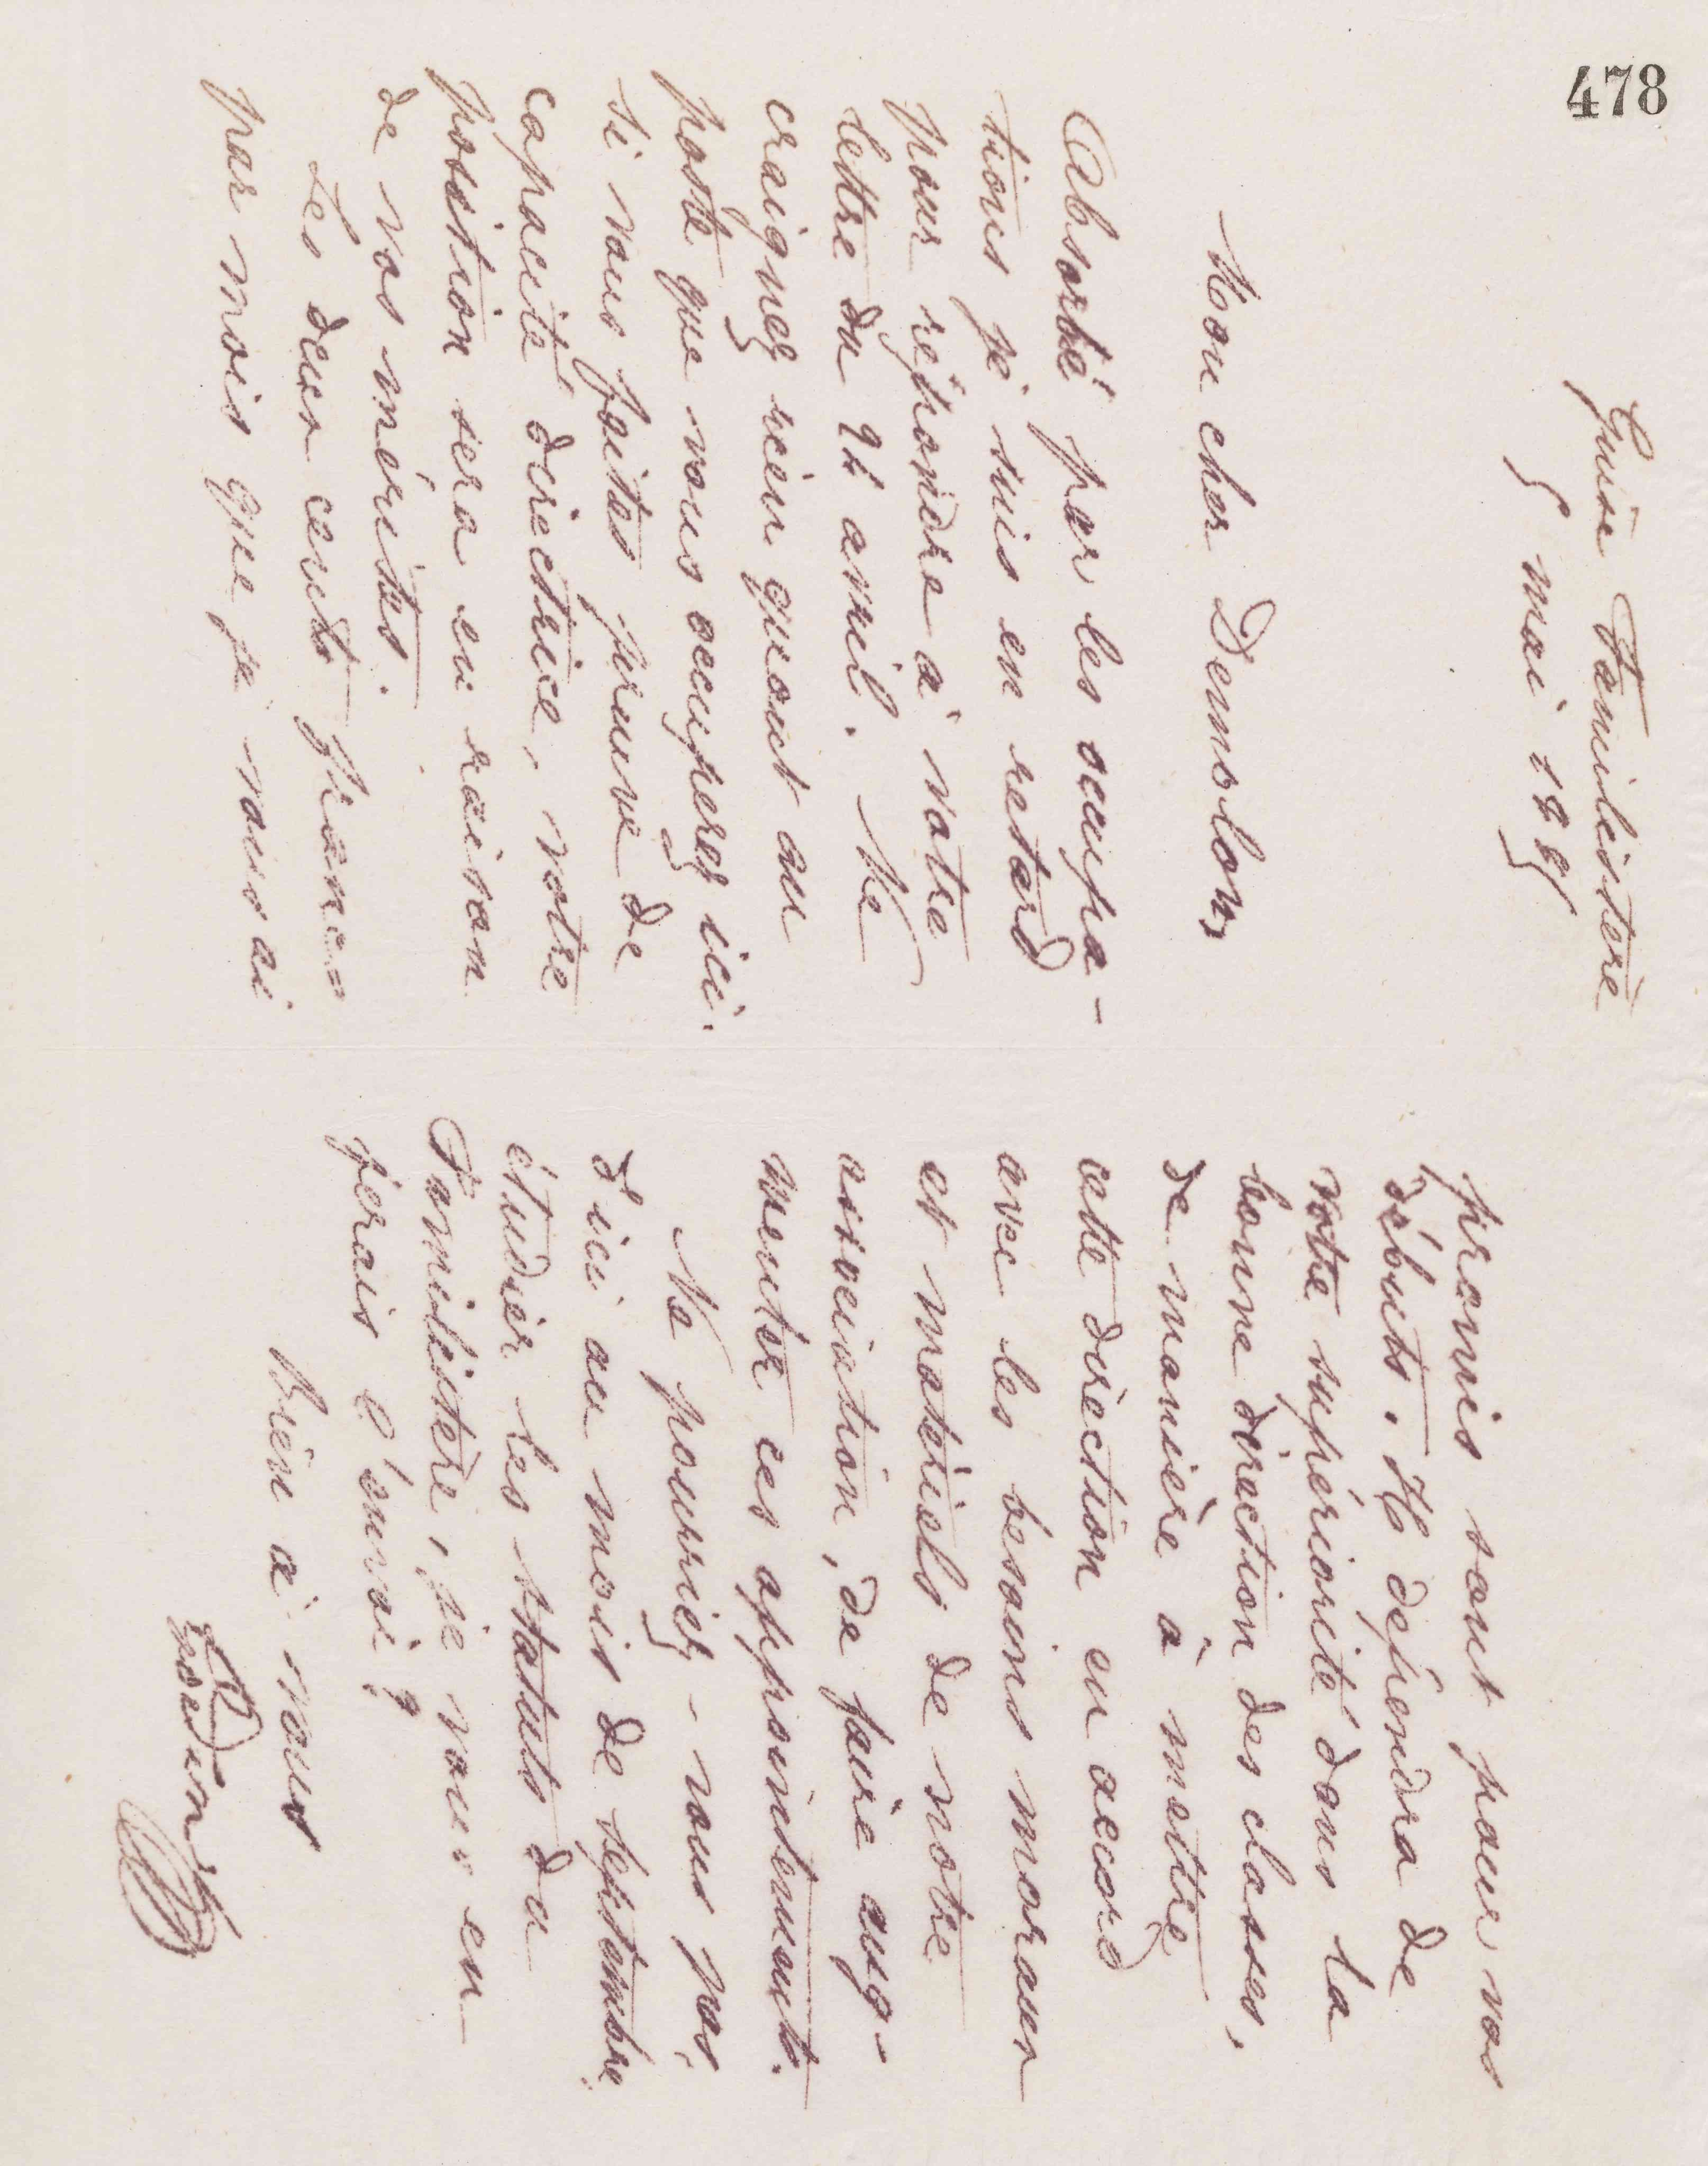 478
Guise Familistère
5 mai 1885
Mon cher Demolon,
Absorbé par les occupa-
tions je suis en retard
pour répondre à votre
lettre du 24 avril. Ne
craignez rien quant au
poste que vous occuperez ici.
si vous faites preuve de
capacité directrice, votre
position sera en raison
de vos mérites.
Les deux cents francs
par mois que je vous ai
promis sont pour vos
débuts. Il dépendra de
votre supériorité dans la
bonne direction des classes,
de manière à mettre
cette direction en accord
avec les besoins moraux
et matériels de notre
association, de faire aug-
menter ces appointements.
Ne pourriez-vous pas,
d'ici au mois de septembre,
étudier les statuts du
Familistère, je vous en
ferais l'envoi ?
Bien à vous
Godin